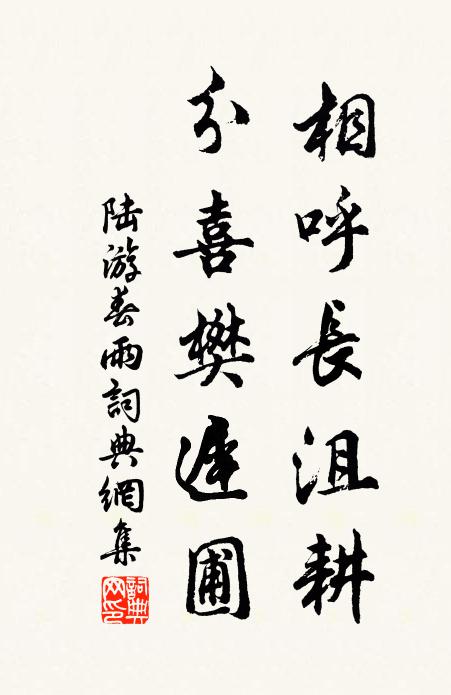 相呼長沮耕
分喜樊遲圃
陸游春雨詞典網集
詞典
网印